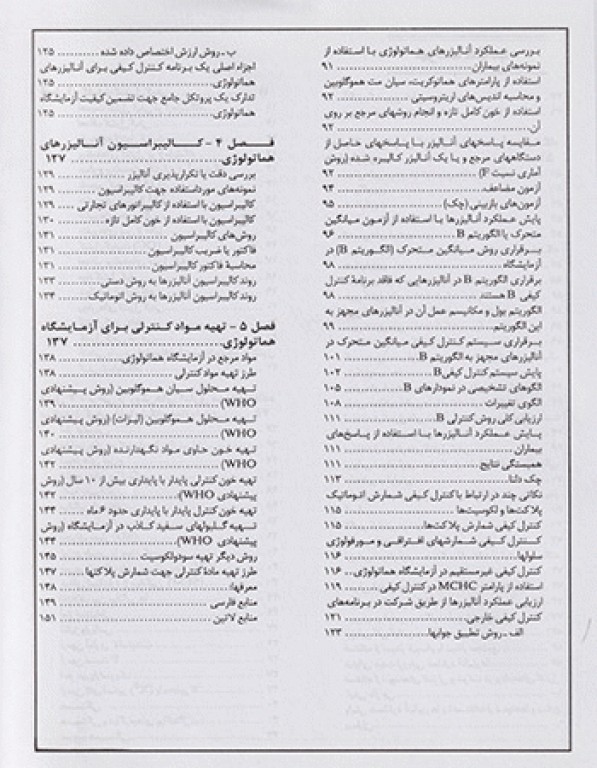 بررسی عملکرد آنالیزرهای هماتولوژی با استفاده از
نمونه‌های بیماران ۹۱
استفاده از پارامترهای هماتوکریت، سیان مت هموگلوبین
و محاسبه اندیس‌های اریتروسیتی ۹۲
استفاده از خون کامل تازه و انجام روشهای مرجع بر روی
آن ۹۲
مقایسه پاسخهای آنالیزر با پاسخهای حاصل از
دستگاههای مرجع و یا یک آنالیزر کالیبره شده (روش
آماری نسبت F) ۹۲
آزمون مضاعف ۹۴
آزمون‌های بازبینی (چک) ۹۵
پایش عملکرد آنالیزرها با استفاده از آزمون میانگین
متحرک یا الگوریتم B ۹۶
برقراری روش میانگین متحرک (الگوریتم B) در
آزمایشگاه ۹۸
برقراری الگوریتم B در آنالیزرهایی که فاقد برنامهٔ کنترل
کیفی B هستند ۹۸
الگوریتم بول و مکانیسم عمل آن در آنالیزرهای مجهز به
این الگوریتم ۹۹
برقراری سیستم کنترل کیفی میانگین متحرک در
آنالیزرهای مجهز به الگوریتم B ۱۰۱
پایش سیستم کنترل کیفی B ۱۰۲
الگوهای تشخیصی در نمودارهای B ۱۰۵
الگوی تغییرات ۱۰۸
ارزیابی کلی روش کنترلی B ۱۱۱
پایش عملکرد آنالیزرها با استفاده از پاسخ‌های
بیماران ۱۱۱
همبستگی نتایج ۱۱۱
چک دلتا ۱۱۳
نکاتی چند در ارتباط با کنترل کیفی شمارش اتوماتیک
پلاکت‌ها و لکوسیت‌ها ۱۱۵
کنترل کیفی شمارش پلاکت‌ها ۱۱۵
کنترل کیفی شمارشهای افتراقی و مورفولوژی
سلولها ۱۱۶
کنترل کیفی غیرمستقیم در آزمایشگاه هماتولوژی ۱۱۶
استفاده از پارامتر MCHC در کنترل کیفی ۱۱۹
ارزیابی عملکرد آنالیزرها از طریق شرکت در برنامه‌های
کنترل کیفی خارجی ۱۲۱
الف ـ روش تطبیق جوابها ۱۲۳
ب ـ روش ارزش اختصاص داده شده ۱۲۵
اجزاء اصلی یک برنامه کنترل کیفی برای آنالیزرهای
هماتولوژی ۱۲۵
تدارک یک پروتکل جامع جهت تضمین کیفیت آزمایشگاه
هماتولوژی ۱۲۵
فصل ۴ - کالیبراسیون آنالیزرهای
هماتولوژی ۱۲۷
بررسی دقت یا تکرارپذیری آنالیزر ۱۲۹
نمونه‌های مورداستفاده جهت کالیبراسیون ۱۲۹
کالیبراسیون با استفاده از کالیبراتورهای تجارتی ۱۲۹
کالیبراسیون با استفاده از خون کامل تازه ۱۳۰
روش‌های کالیبراسیون ۱۳۱
فاکتور یا ضریب کالیبراسیون ۱۳۱
محاسبهٔ فاکتور کالیبراسیون ۱۳۱
روند کالیبراسیون آنالیزرها به روش دستی ۱۳۳
روند کالیبراسیون آنالیزرها به روش اتوماتیک ۱۳۴
فصل ۵ - تهیه مواد کنترلی برای آزمایشگاه
هماتولوژی ۱۳۷
مواد مرجع در آزمایشگاه هماتولوژی ۱۳۸
طرز تهیه مواد کنترلی ۱۳۸
تهیه محلول سیان هموگلوبین (روش پیشنهادی
WHO) ۱۳۹
تهیه محلول هموگلوبین (لیزات) (روش پیشنهادی
WHO) ۱۴۰
تهیه خون حاوی مواد نگهدارنده (روش پیشنهادی
WHO) ۱۴۲
تهیه خون کنترلی پایدار با پایداری بیش از ۱۰ سال (روش
پیشنهادی WHO) ۱۴۲
تهیه خون کنترل پایدار با پایداری حدود ۶ ماه ۱۴۴
تهیه گلبولهای سفید کاذب در آزمایشگاه (روش
پیشنهادی WHO) ۱۴۴
روش دیگر تهیه سودولکوسیت ۱۴۵
طرز تهیه مادهٔ کنترلی جهت شمارش پلاکتها ۱۴۷
معرفها: ۱۴۸
منابع فارسی ۱۴۹
منابع لاتین ۱۵۱